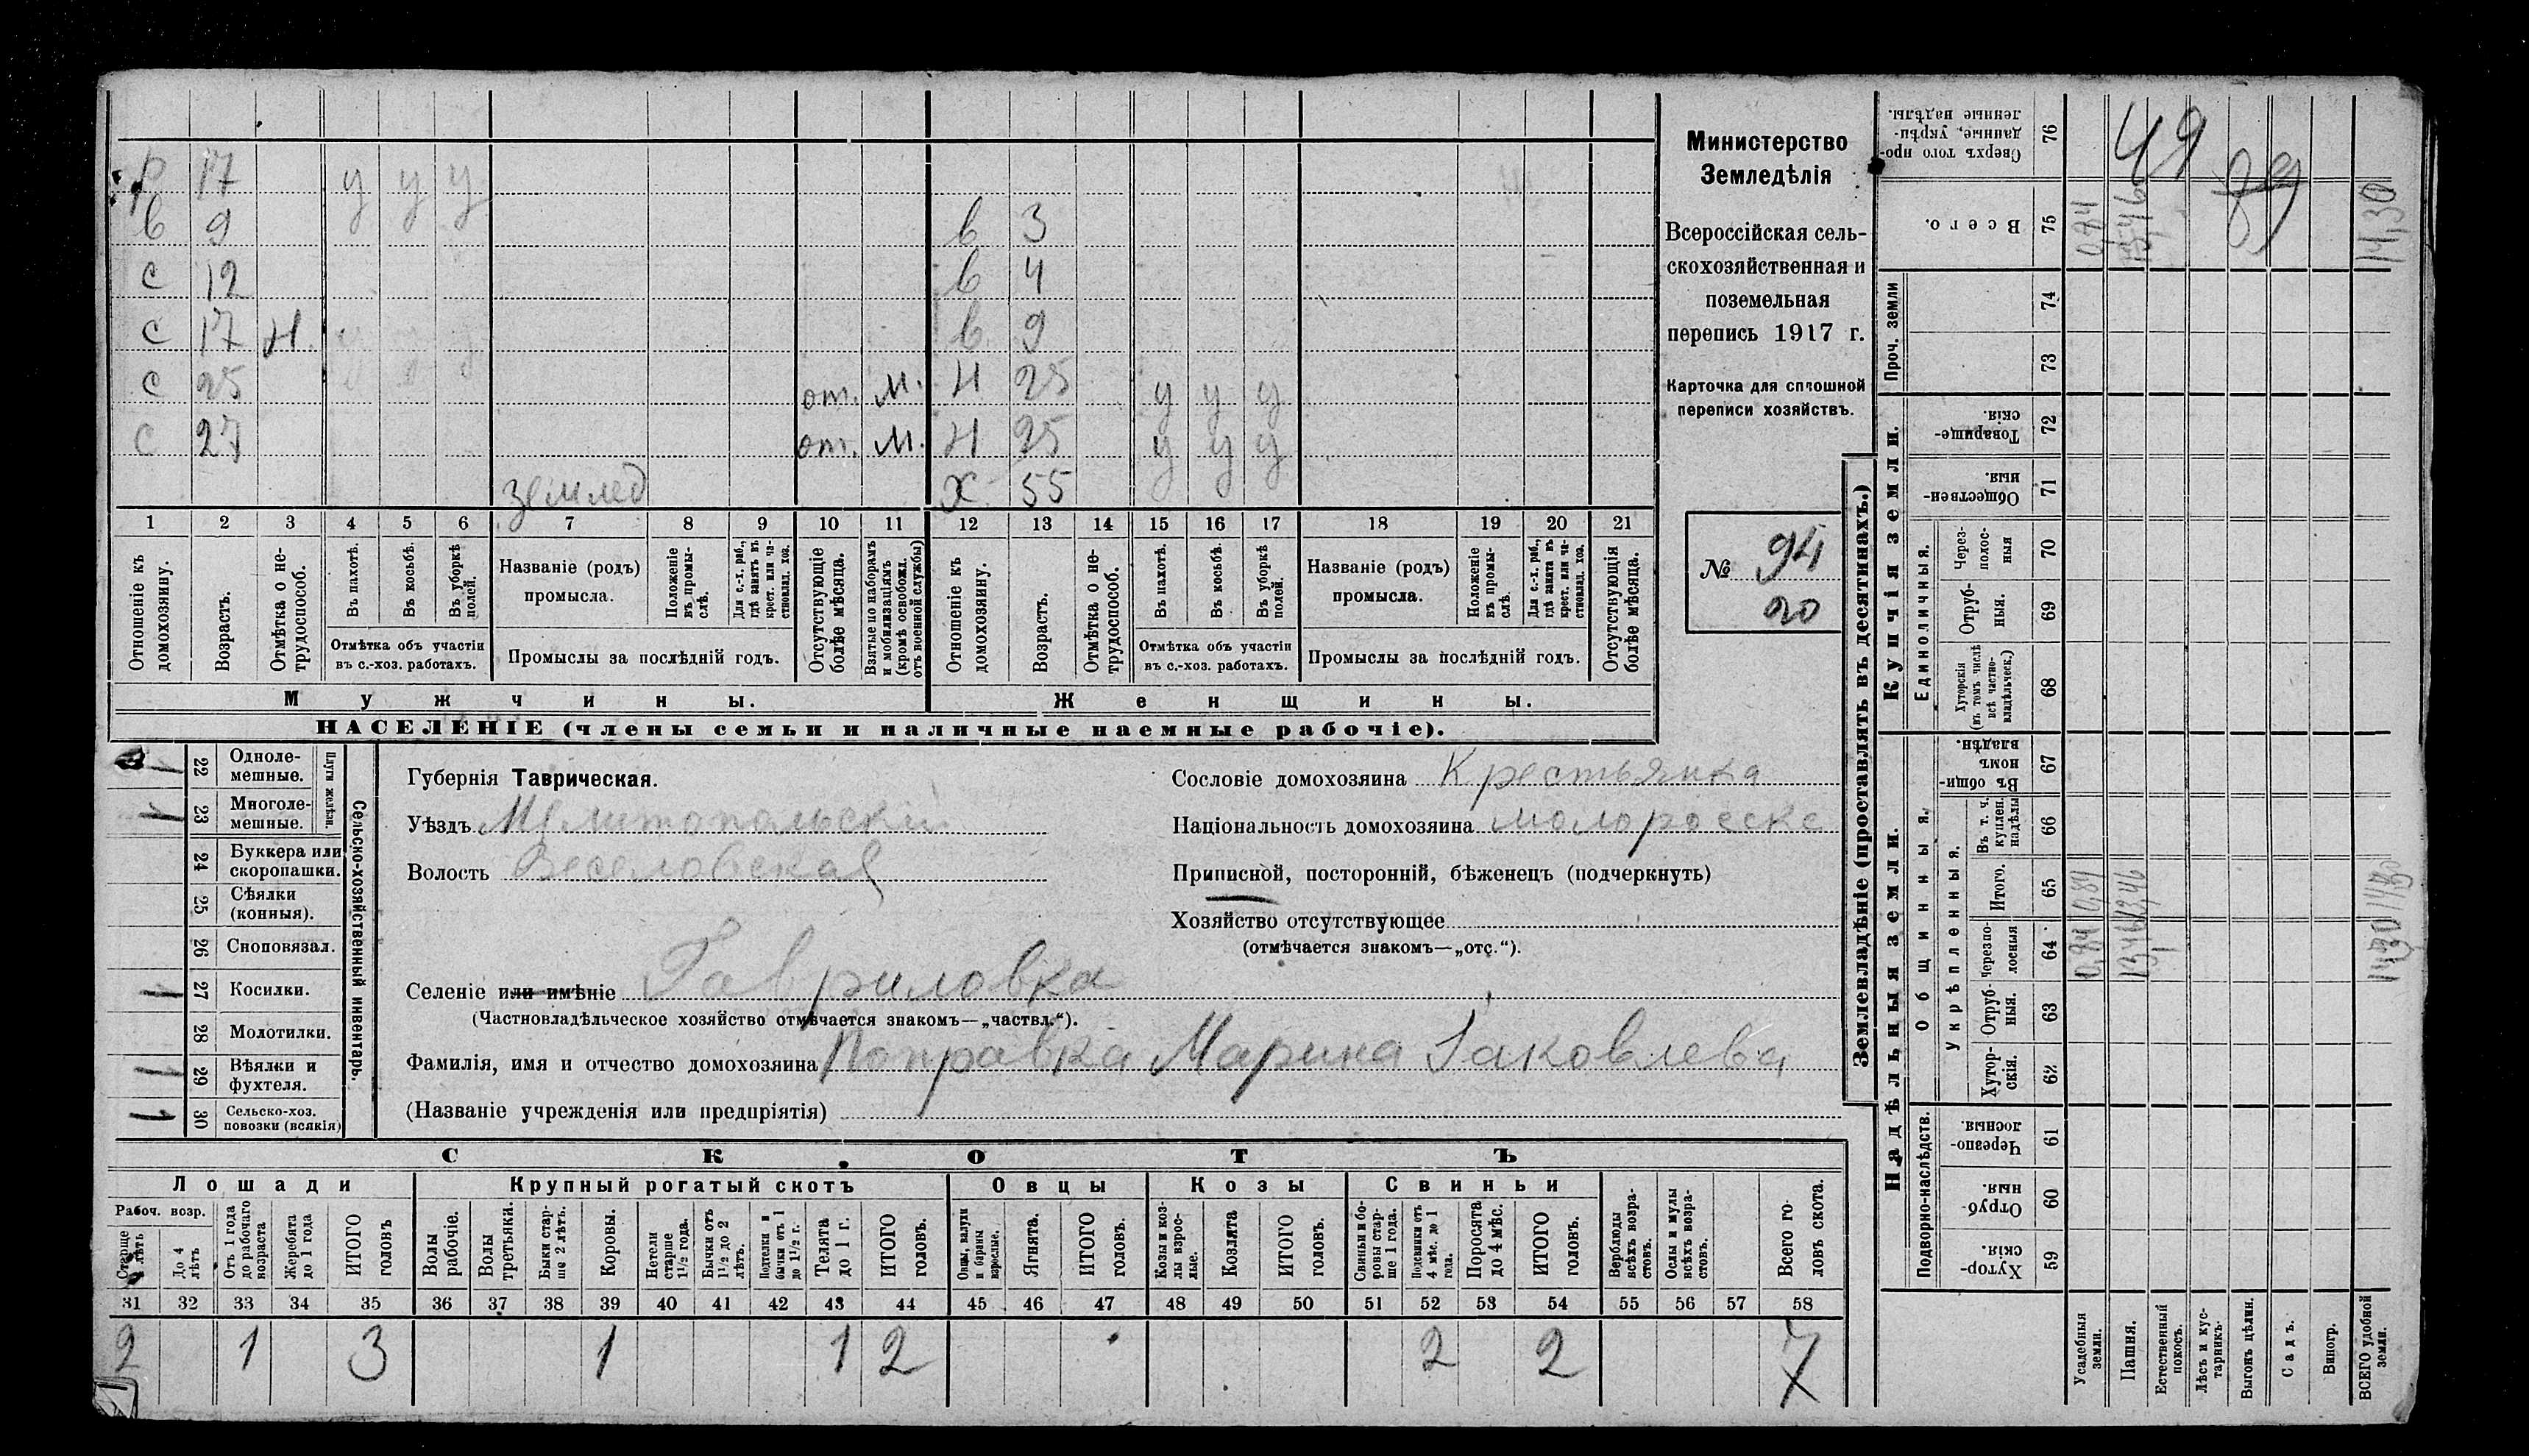 р 17 у у у
в 9 в 3
с 12 в 4
с 17 н. в 9
с 25 от. м. н 25 у у у
с 27 от. м. н 25 у у у
землед х 55
1 2 3 4 5 6 7 8 9 10 11 12 13 14 15 16 17 18 19 20 21
Отношеніе къ домохозяину.
Возрастъ.
Отмѣтка о не-
трудоспособ.
Въ пахотѣ.
Въ косьбѣ.
Въ уборкѣ полей.
Отмѣтка объ участіи
въ с.-хоз. работахъ.
Названіе (родъ)
промысла.
Положеніе въ промы-
слѣ.
Для с.-х. раб.,
гдѣ занятъ въ
крест. или ча-
стновлад. хоз.
Промыслы за послѣдній годъ.
Отсутствующіе
болѣе мѣсяца.
Взятые по наборамъ
и мобилизаціямъ
(кромѣ освобожд.
отъ военной службы)
Отношеніе къ
домохозяину.
Возрастъ.
Отмѣтка о не-
трудоспособ.
Въ пахотѣ.
Въ косьбѣ.
Въ уборкѣ полей.
Отмѣтка объ участіи
въ с.-хоз. работахъ.
Названіе (родъ)
промысла.
Положеніе въ промы-
слѣ.
Для с.-х. раб.,
гдѣ занята въ
крест. или ча-
стновлад. хоз.
Промыслы за послѣдній годъ.
Отсутствующія
болѣе мѣсяца.
Мужчины. Женщины.
НАСЕЛЕНІЕ (члены семьи и наличные наемные рабочіе).
Министерство
Земледѣлія
Всероссійская сель-
скохозяйственная и
поземельная
перепись 1917 г.
Карточка для сплошной
переписи хозяйствъ.
№ 94
20
22 Одноле-
мешные.
23 Многоле-
мешные.
Плуги желѣзн.
24 Буккера или
скоропашки.
25 Сѣялки
(конныя).
26 Сноповязал.
27 Косилки.
28 Молотилки.
29 Вѣялки и
фухтеля.
30 Сельско-хоз.
повозки (всякія)
Сельско-хозяйственный инвентарь.
Губернія Таврическая.
Уѣздъ Мелитопольскій
Волость Веселовская
Селеніе или имѣніе Гавриловка
(Частновладѣльческое хозяйство отмѣчается знакомъ—„частвл.“).
Фамилія, имя и отчество домохозяина Поправка Марина Іаковлева
(Названіе учрежденія или предпріятія)
Сословіе домохозяина Крестьянка
Національность домохозяина малоросске
Приписной, посторонній, бѣженецъ (подчеркнуть)
Хозяйство отсутствующее
(отмѣчается знакомъ—„отс.“).
СКОТЪ
Лошади Крупный рогатый скотъ Овцы Козы Свиньи
Рабоч. возр.
Старше лѣтъ
До 4
лѣтъ
Отъ 1 года
до рабочаго
возраста
Жеребята
до 1 года
ИТОГО
головъ
Волы
рабочіе.
Волы
третьяки.
Быки стар-
ше 2 лѣтъ.
Коровы.
Нетели
старше
1½ года.
Бычки отъ
1½ до 2
лѣтъ.
Подтелки и
бычки отъ 1
до 1½ г.
Телята
до 1 г.
ИТОГО
головъ.
Овцы, валухи
и бараны
взрослые.
Ягнята.
ИТОГО
головъ.
Козы и коз-
лы взрос-
лые.
Козлята
ИТОГО
головъ.
Свиньи и бо-
ровы стар-
ше 1 года.
Подсвинки отъ
4 мѣс. до 1
года.
Поросята
до 4 мѣс.
ИТОГО
головъ.
Верблюды
всѣхъ возра-
стовъ.
Ослы и мулы
всѣхъ возра-
стовъ.
Всего го-
ловъ скота.
31 32 33 34 35 36 37 38 39 40 41 42 43 44 45 46 47 48 49 50 51 52 53 54 55 56 57 58
2 1 3 1 1 2 2 2 7
Землевладѣніе (проставлять въ десятинахъ.)
Надѣльныя земли. Купчія земли. Проч. земли
Сверхъ того про-
данные, укрѣп-
ленные надѣлы. 76 49 89
Всего. 75 0,84 14,30
74
73
Товарище-
скія. 72
Обществен-
ныя. 71
Единоличныя.
Через-
полос-
ныя 70
Отруб-
ныя. 69
Хуторскія
(въ томъ числѣ
всѣ частно-
владѣльческ.) 68
Общинныя.
Въ общин-
номъ
владѣн. 67
Укрѣпленныя.
Въ т. ч.
куплен.
надѣлы 66
Итого. 65 0,84 13,46
Черезпо-
лосныя 64 0,84 13,46 14,30
Отруб-
ныя. 63
Хутор-
скія. 62
Подворно-наслѣдств.
Черезпо-
лосныя. 61
Отруб-
ныя. 60
Хутор-
скія. 59
Усадебныя
земли.
Пашня.
Естественный
покосъ.
Лѣсъ и кус-
тарникъ.
Выгонъ цѣлин.
Садъ.
Виногр.
ВСЕГО удобной
земли.